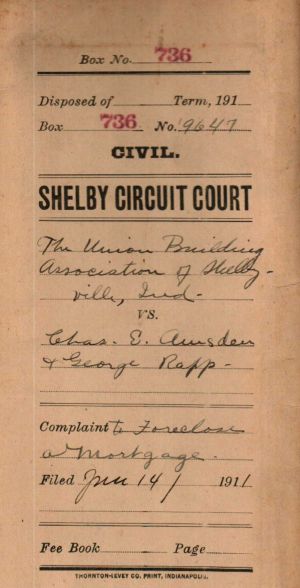 Box No. 736
Disposed of Term, 191
Box 736 No. 9647
CIVIL.
SHELBY CIRCUIT COURT
The Union Building
Association of Shelby-
ville, Ind-
VS.
Chas. E. Amsden
& George Rapp-
Complaint to Foreclose
a Mortgage.
Filed 14 1911
Fee Book Page
THORNTON-LEVEY CO. PRINT, INDIANAPOLIS.